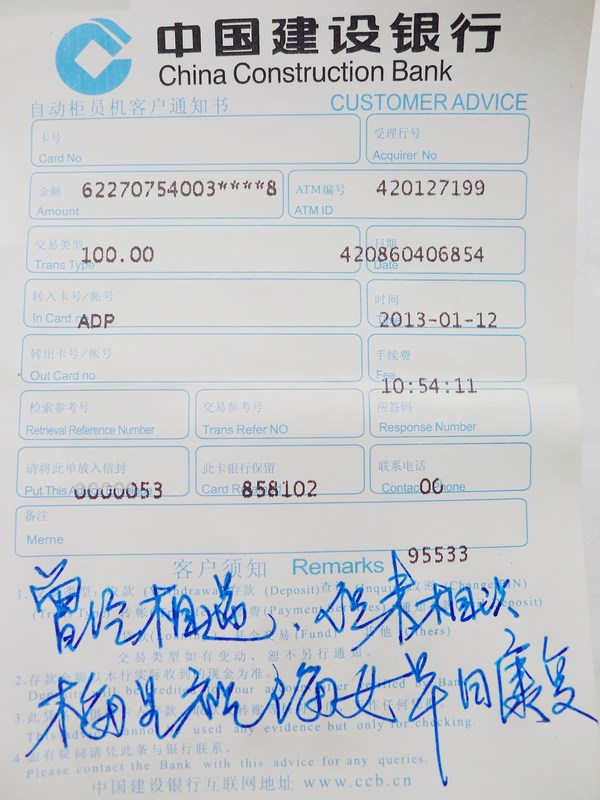 中国建设银行
China Construction Bank
自动柜员机客户通知书 CUSTOMER ADVICE
卡号 受理行号
Card No Acquirer No
金额 62270754003****8 ATM编号 420127199
Amount ATM ID
交易类型 日期
100.00 420860406854
Trans Type Date
转入卡号/帐号 时间
In Card no ADP 2013-01-12
转出卡号/帐号 手续费
Out Card no Fee
10:54:11
检索参考号 交易参考号 应答码
Retrieval Reference Number Trans Refer NO Response Number
请将此单放入信封 此卡银行保留 联系电话
Put This 0000053 Card 858102 Contact Phone 00
备注
Merne
95533
客户须知 Remarks
曾经相遇、但未相识
祝 海女早日康复
交易类型如有变动，恕不另行通知。
2.存款金额以本行实际收到的现金为准。
used any evidence but only for checking.
4.如有疑问请凭此条与银行联系。
Please contact the Bank with this advice for any queries.
中国建设银行互联网地址 www.ccb.cn